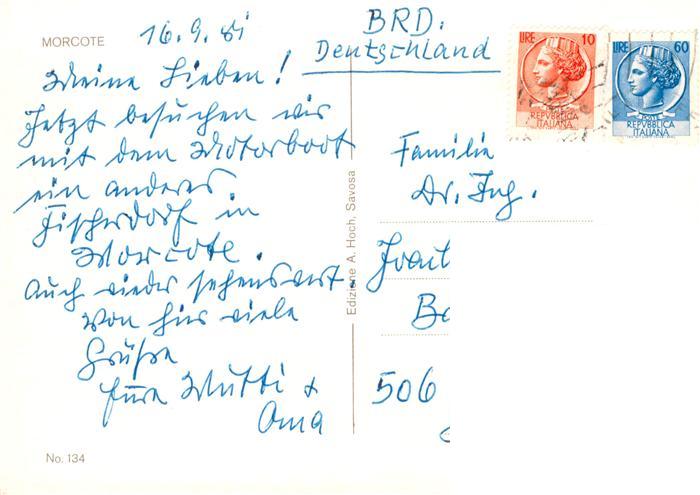 MORCOTE
16.9.81
Meine Lieben!
Jetzt besuchen wir
mit dem Motorboot
ein anderes
Fischerdorf in
Morcote.
Auch wieder sehenswert.
Von hier viele
Grüße
Eure Mutti &
Oma
No. 134
Edizione A. Hoch, Savosa
BRD.
Deutschland
LIRE 10
REPVBBLICA
ITALIANA
LIRE 60
REPVBBLICA
ITALIANA
Familie
Dr. Ing.
506